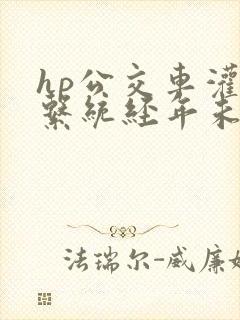 hp公交車灌
系統經年未
法瑞尔-威廉姆